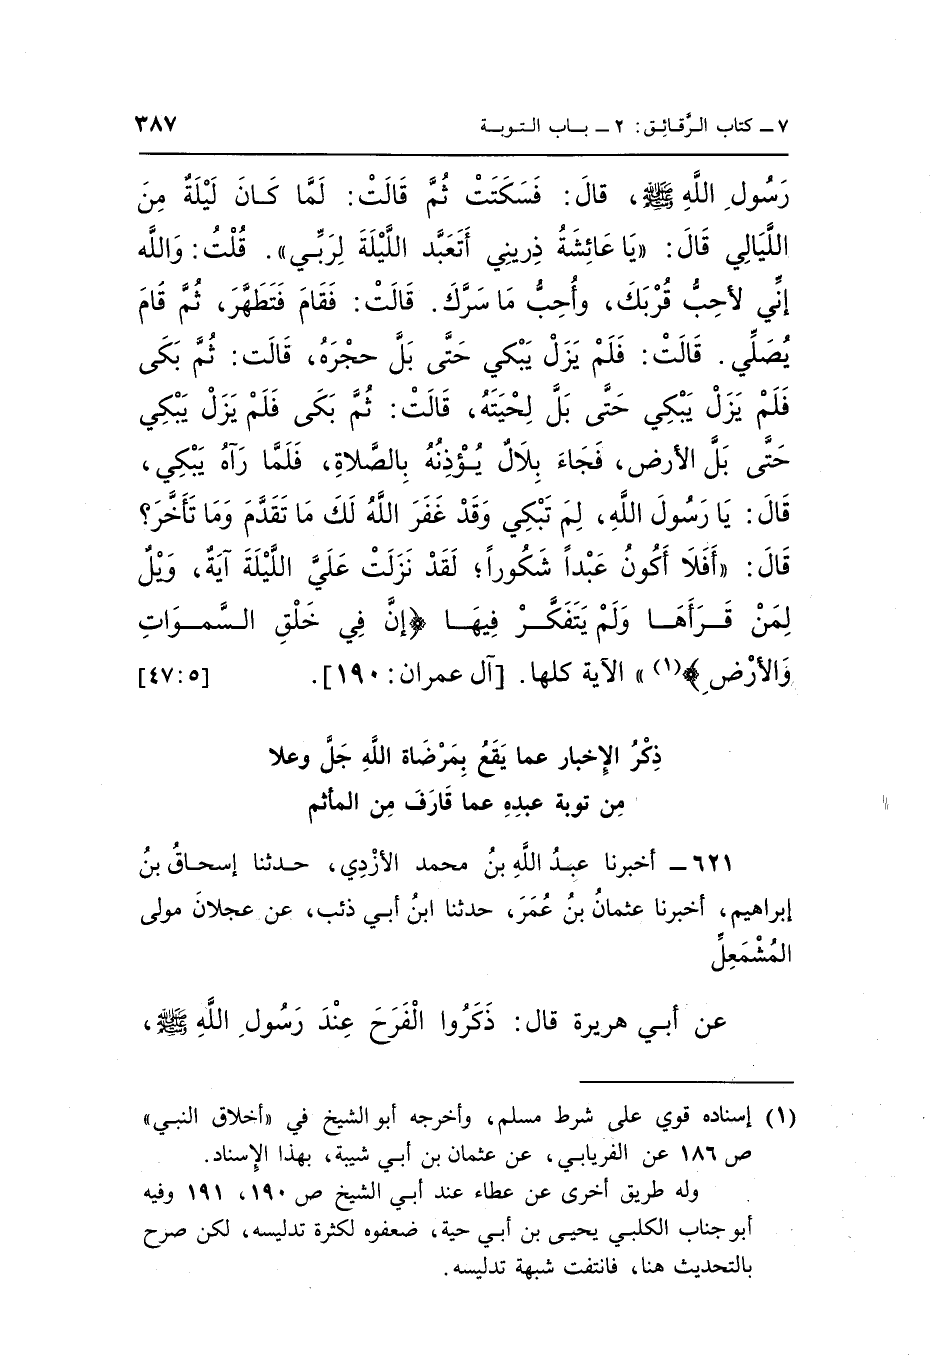 ٧ ـ كتاب الرَّقائق: ٢ ـ باب التوبة ٣٨٧
رَسُولِ اللَّهِ ﷺ، قالَ: فَسَكَتَتْ ثُمَّ قَالَتْ: لَمَّا كَانَ لَيْلَةٌ مِنَ
اللَّيَالِي قَالَ: «يَا عَائِشَةُ ذِرِيني أَتَعَبَّد اللَّيْلَةَ لِرَبِّي». قُلْتُ: وَاللَّه
إِنِّي لأحِبُّ قُرْبَكَ، وأُحِبُّ مَا سَرَّكَ. قَالَتْ: فَقَامَ فَتَطَهَّرَ، ثُمَّ قَامَ
يُصَلِّي. قَالَتْ: فَلَمْ يَزَلْ يَبْكي حَتَّى بَلَّ حجْرَهُ، قَالَت: ثُمَّ بَكَى
فَلَمْ يَزَلْ يَبْكي حَتَّى بَلَّ لِحْيَتَهُ، قَالَتْ: ثُمَّ بَكَى فَلَمْ يَزَلْ يَبْكِي
حَتَّى بَلَّ الأرضَ، فَجَاءَ بِلَالٌ يُؤْذِنُهُ بِالصَّلاةِ، فَلَمَّا رَآهُ يَبْكِي،
قَالَ: يَا رَسُولَ اللَّهِ، لِمَ تَبْكِي وَقَدْ غَفَرَ اللَّهُ لَكَ مَا تَقَدَّمَ وَمَا تَأَخَّرَ؟
قَالَ: «أَفَلَا أَكُونُ عَبْداً شَكُوراً؛ لَقَدْ نَزَلَتْ عَلَيَّ اللَّيْلَةَ آيَةٌ، وَيْلٌ
لِمَنْ قَرَأَهَا وَلَمْ يَتَفَكَّرْ فِيهَا ﴿إِنَّ فِي خَلْقِ السَّموَاتِ
وَالأرْضِ﴾(١)» الآية كلها. [آل عمران: ١٩٠]. [٤٧:٥]
ذِكْرُ الإِخبار عما يَقَعُ بِمَرْضَاة اللَّهِ جَلَّ وعلا
مِن توبة عبدِهِ عما قَارَفَ مِن المأثم
٦٢١ ـ أخبرنا عبدُ اللَّهِ بنُ محمد الأزْدِي، حدثنا إسحاقُ بنُ
إبراهيم، أخبرنا عثمانُ بنُ عُمَرَ، حدثنا ابنُ أبي ذئب، عن عجلانَ مولى
المُشْمَعِلِّ
عن أبي هريرة قال: ذَكَرُوا الْفَرَحَ عِنْدَ رَسُولِ اللَّهِ ﷺ،
(١) إسناده قوي على شرط مسلم، وأخرجه أبو الشيخ في «أخلاق النبي»
ص ١٨٦ عن الفريابي، عن عثمان بن أبي شيبة، بهذا الإِسناد.
وله طريق أخرى عن عطاء عند أبي الشيخ ص ١٩٠، ١٩١ وفيه
أبو جناب الكلبي يحيى بن أبي حية، ضعفوه لكثرة تدليسه، لكن صرح
بالتحديث هنا، فانتفت شبهة تدليسه.